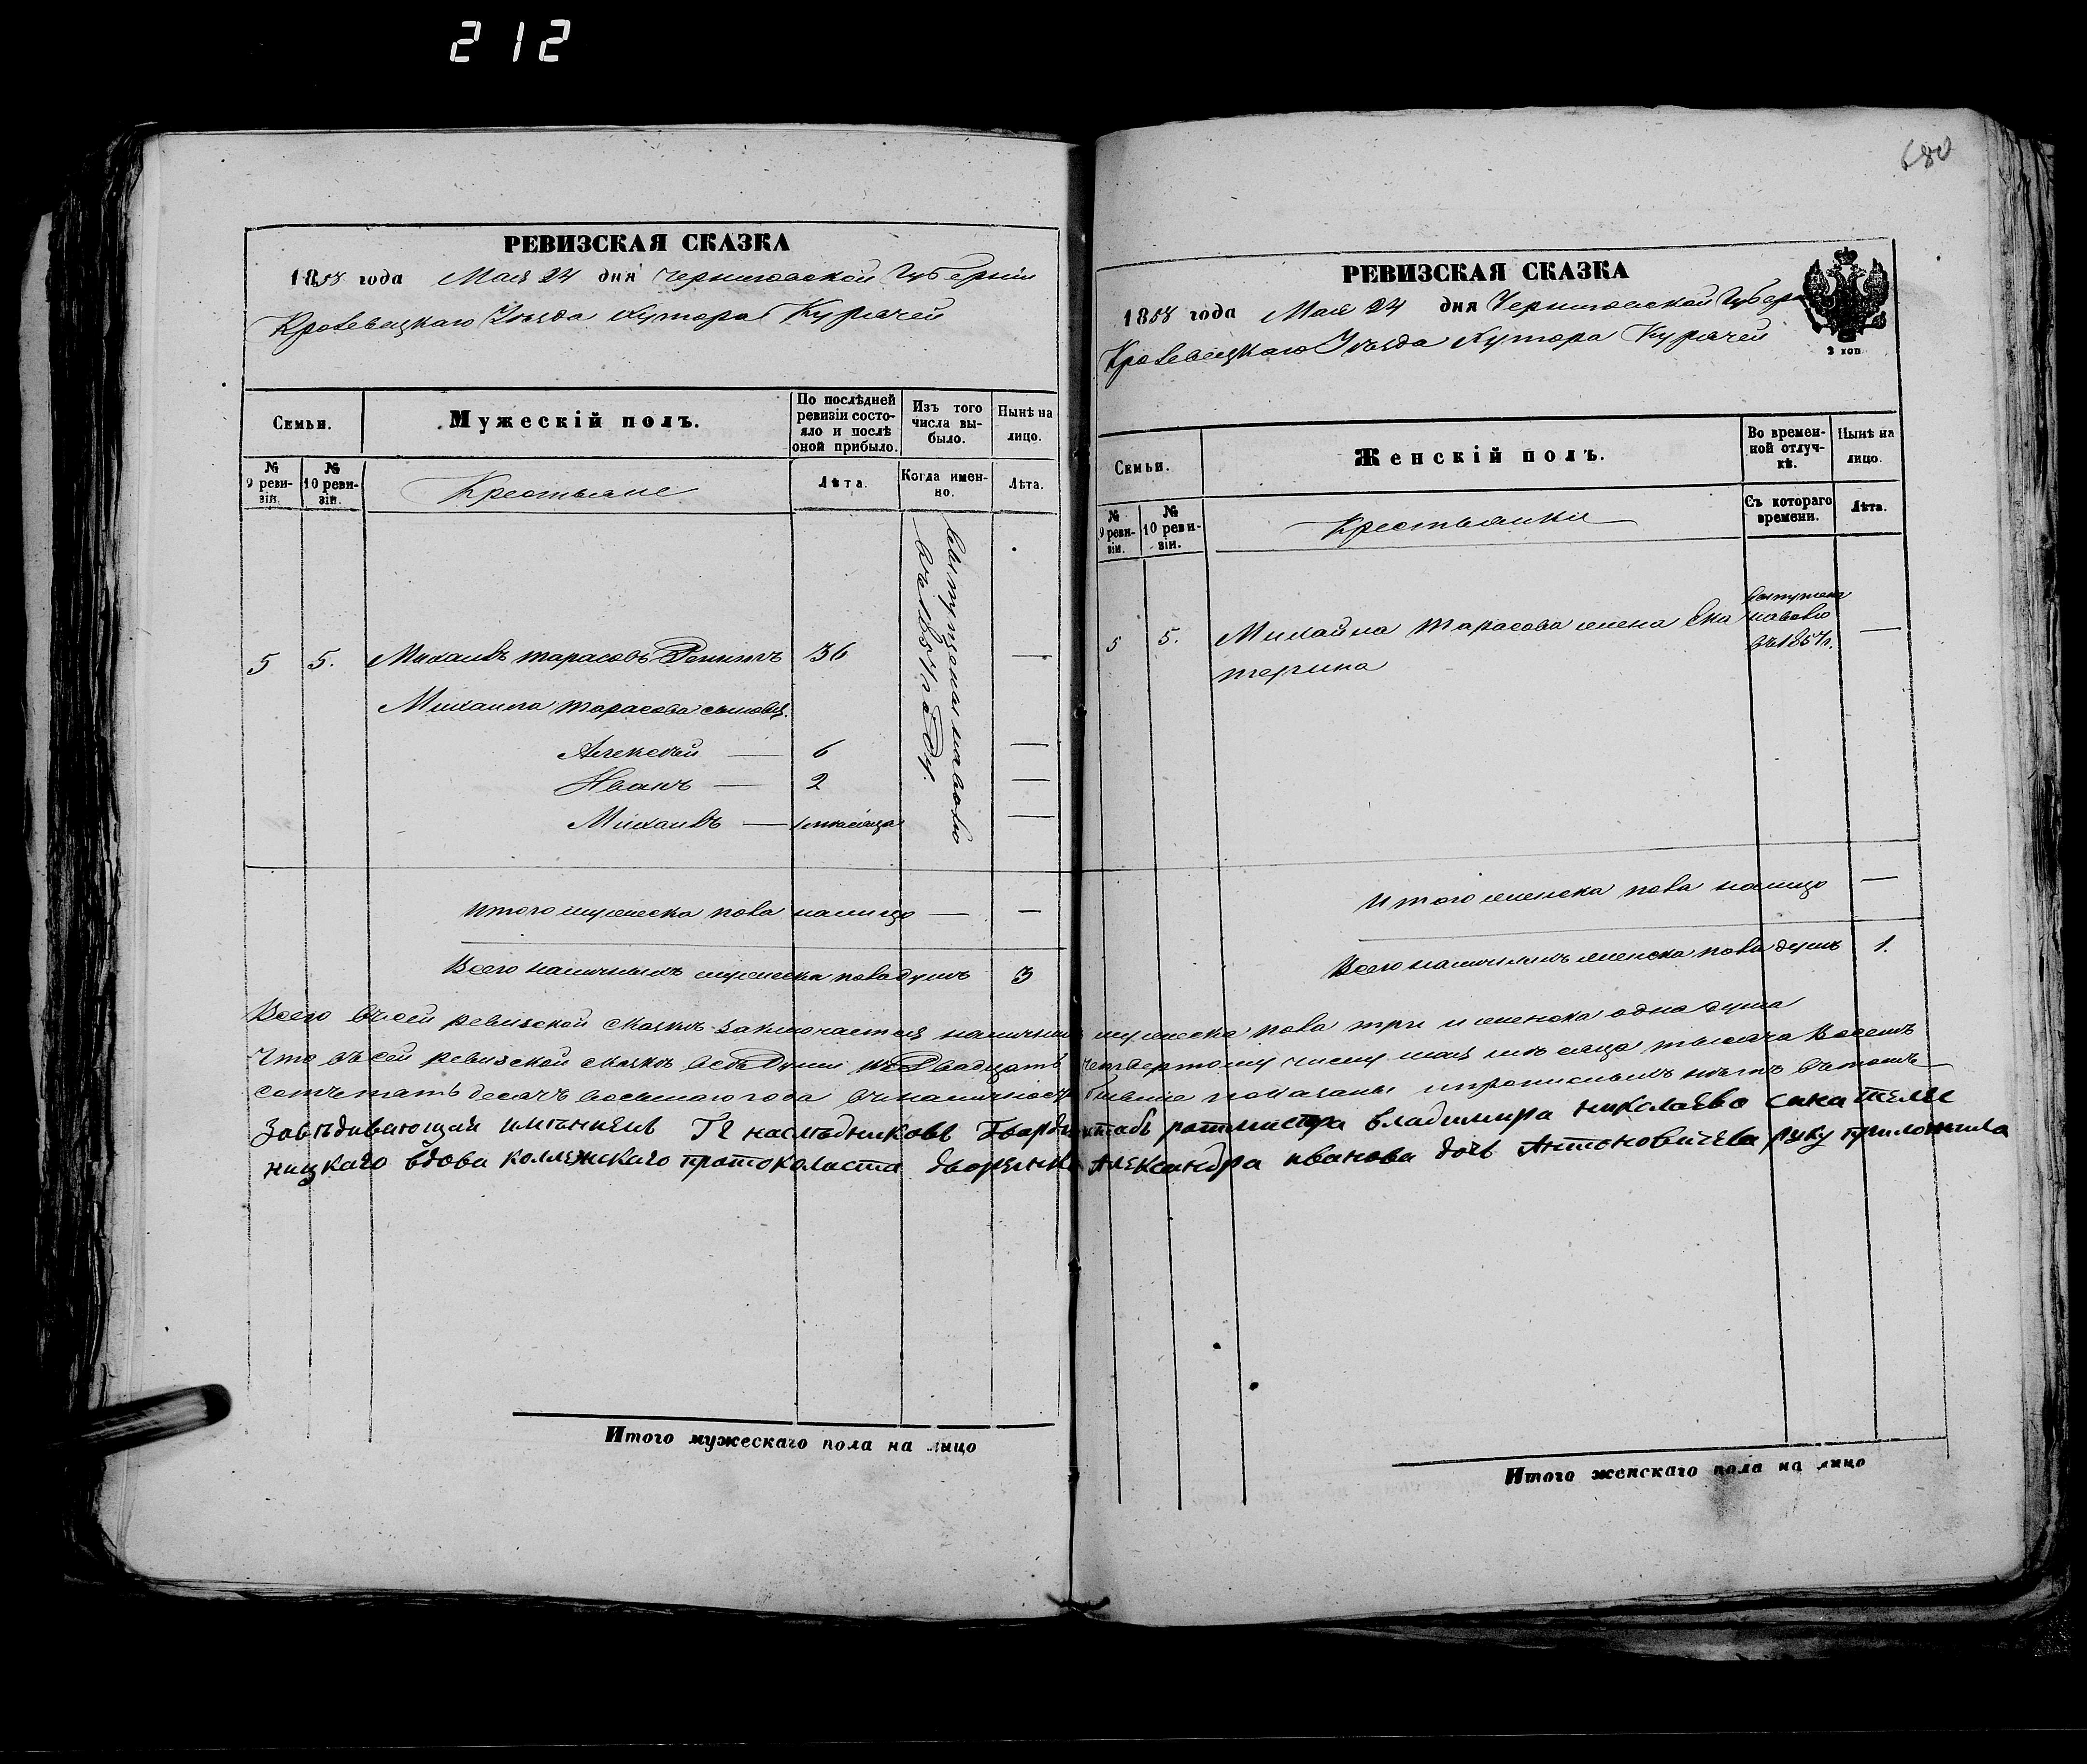 212
680
РЕВИЗСКАЯ СКАЗКА
1858 года Мая 24 дня Черниговской Губерніи
Кролевецкаго Уѣзда хутора Курачей
Семьи.
Мужескій полъ.
По послѣдней ревизіи состояло и послѣ оной прибыло.
Изъ того числа выбыло.
Нынѣ на лицо.
№ 9 ревизіи.
№ 10 ревизіи.
Крестьяне
Лѣта.
Когда именно.
Лѣта.
5 5. Михаилъ Тарасовъ 36 —
Михаила Тарасова сыновья.
Алексѣй — 6 —
Иванъ — 2 —
Михаилъ — —
выпущены наволю
въ 1857 году.
Итого мужеска пола налицо — —
Всего наличныхъ мужеска пола душъ 3
РЕВИЗСКАЯ СКАЗКА
1858 года Мая 24 дня Черниговской Губер
Кролевецкаго Уѣзда хутора Курачей
2 коп
Семьи.
Женскій полъ.
Во временной отлучкѣ.
Нынѣ на лицо.
№ 9 ревизіи.
№ 10 ревизіи.
Крестьянки
Съ котораго времени.
Лѣта.
5 5. Михайла Тарасова жена Ека
терина
выпущена
наволю
въ 1857 г. —
Итого женска пола налицо —
Всего наличныхъ женска пола душъ 1.
Всего въ сей ревизской сказкѣ заключается наличныхъ мужеска пола три и женска одна душа
Что въ сей ревизской сказкѣ всѣ души къ двадцать четвертому числу мая мѣсяца тысяча восемъ
сотъ пять десятъ восьмаго года въ наличности бывшие показаны и прописныхъ нѣтъ въ томъ
Завѣдивающая имѣниемъ Гг наследниковъ Гвардіи штабъ ротмистра владимира николаева сина Теле
ницкаго вдова коллежскаго протоколиста дворянка Александра иванова дочь Антоновичева руку приложила
Итого мужескаго пола на лицо
Итого женскаго пола на лицо